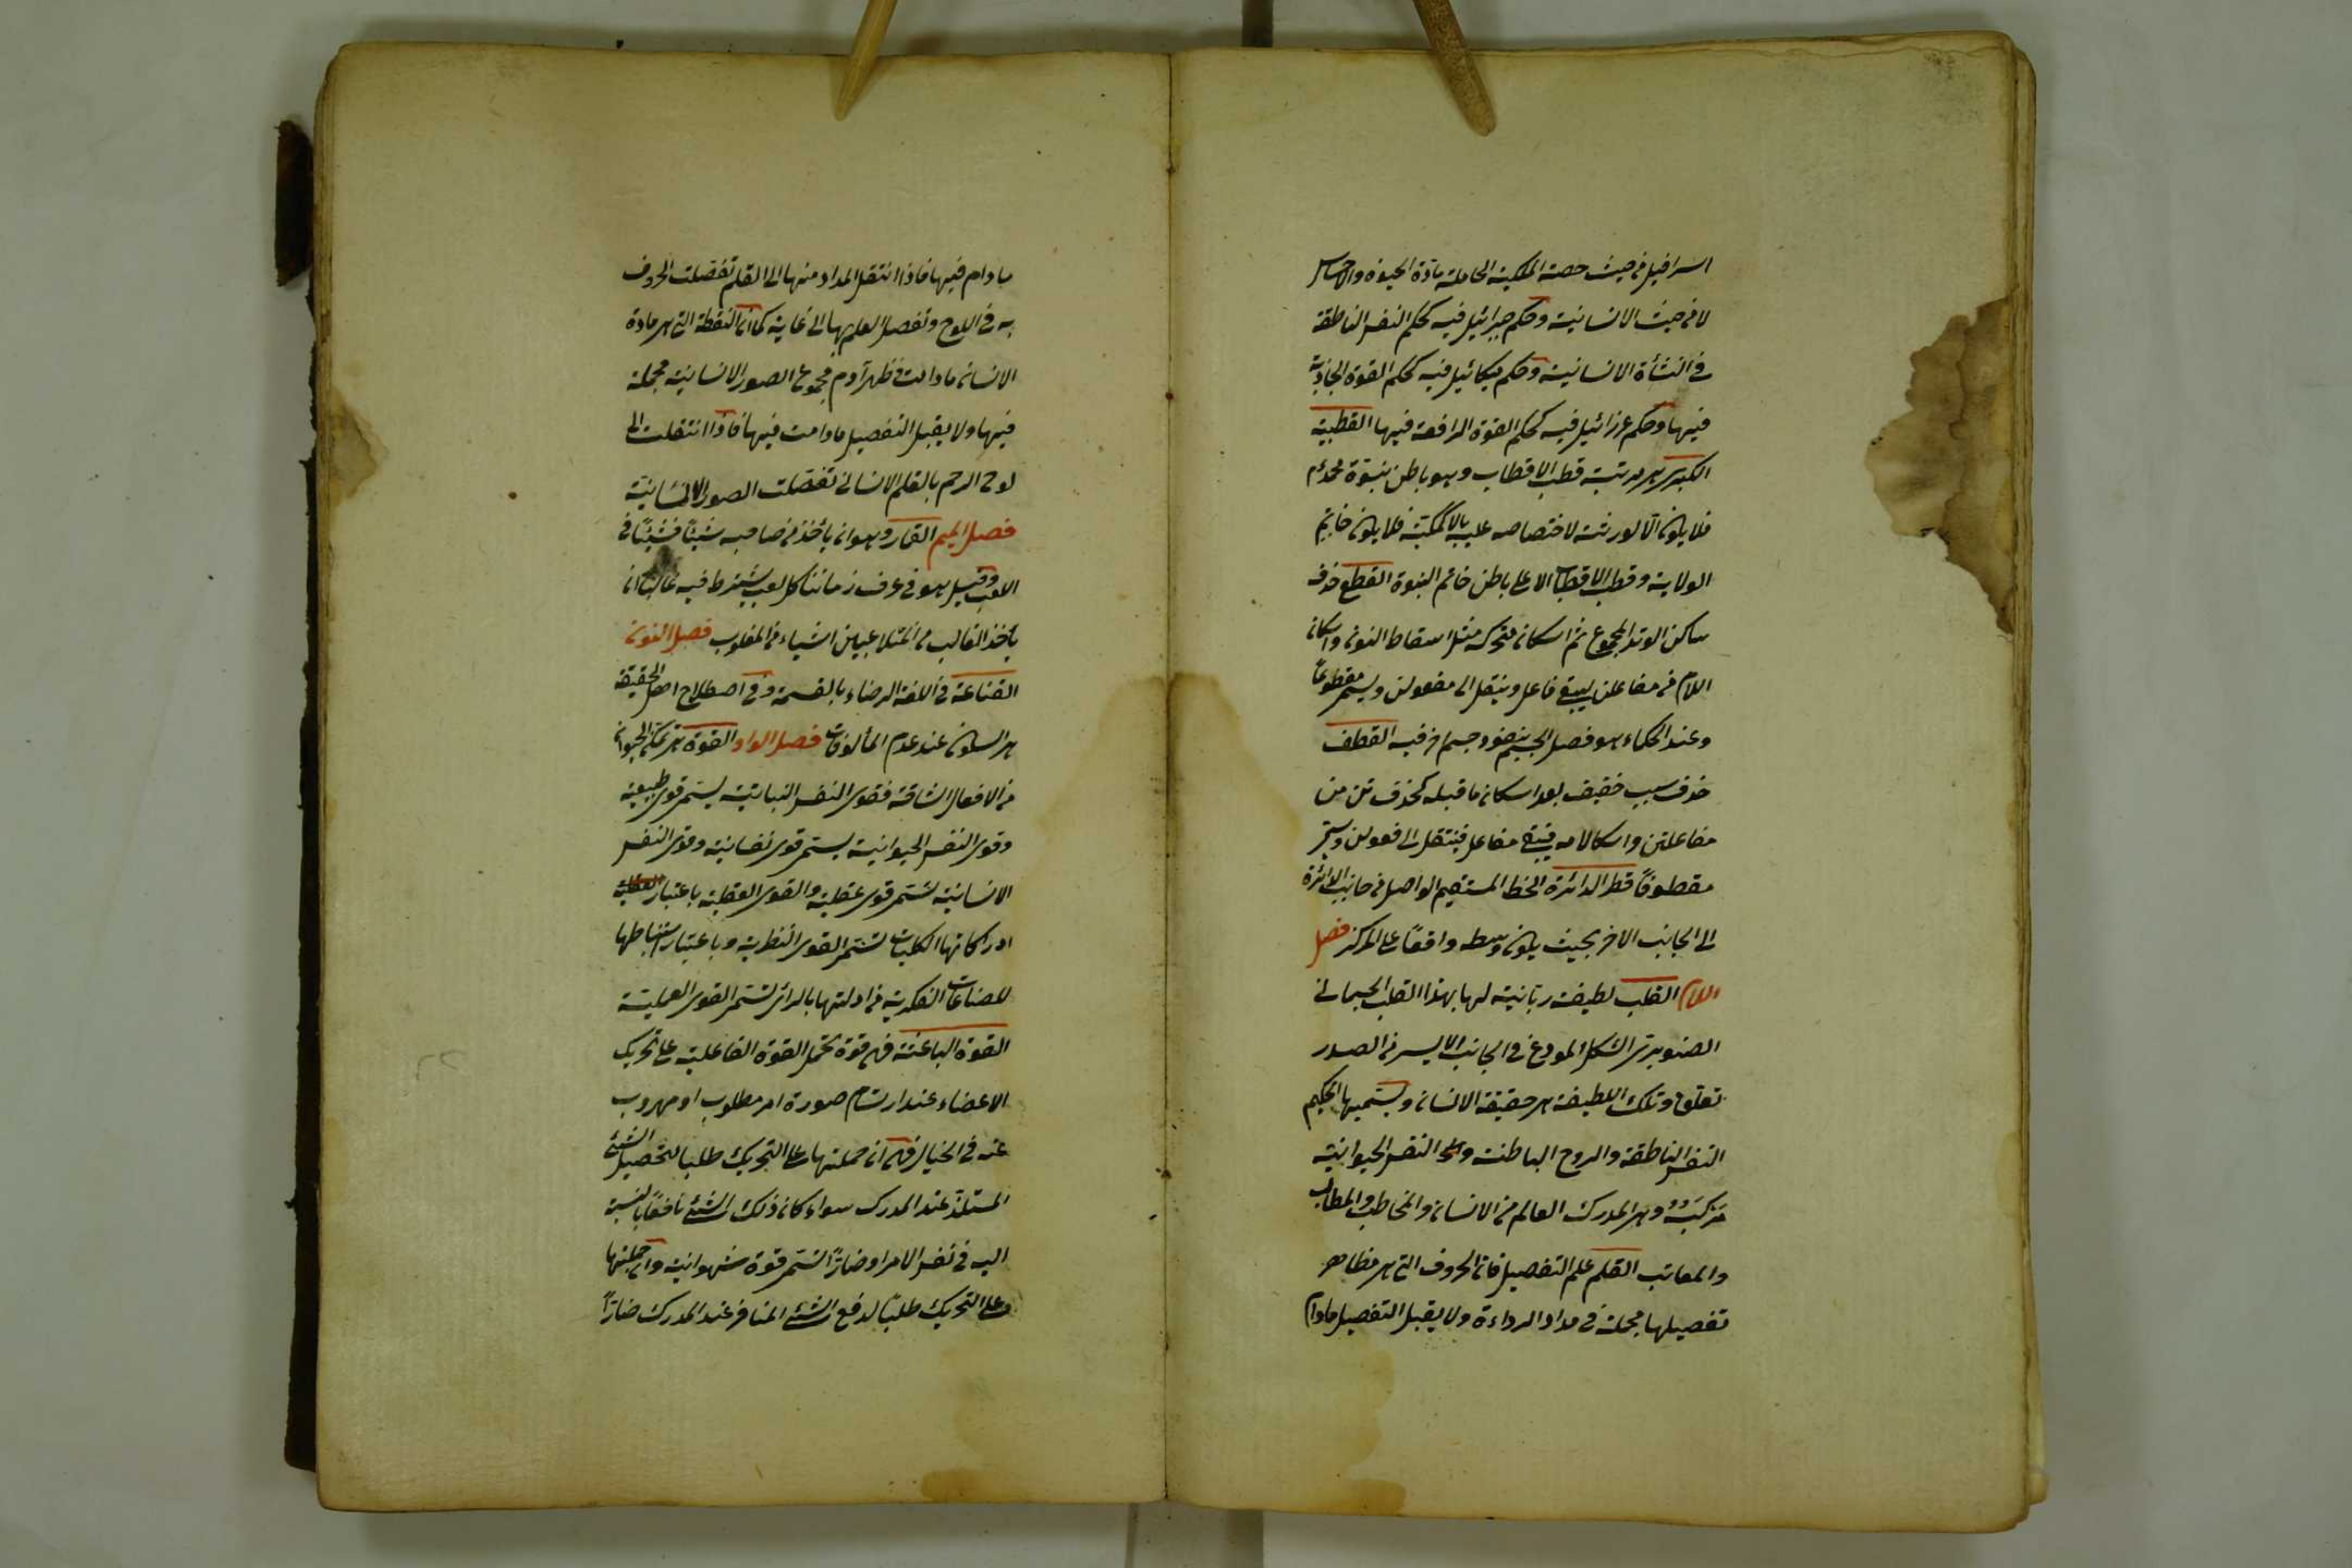 اسرافيل من حيث حصته الملكية الحاملة مادة الحيوة والاحساس
لا من حيث الانسانية وحكم جبرائيل فيه كحكم النفس الناطقة
في النشأة الانسانية وحكم ميكائيل فيه كحكم القوة الجاذبة
فيها وحكم عزرائيل فيه كحكم القوة الدافعة فيها القطبية
الكبرى هى مرتبة قطب الاقطاب وهو باطن نبوة محمد عم
فلا يكون الا لورثته لاختصاصه عليه بالاكملية فلا يكون خاتم
الولاية وقطب الاقطاب الا على باطن خاتم النبوة القطع حذف
ساكن الوتد المجموع ثم اسكان متحركه مثل اسقاط النون واسكان
اللام من مفاعلن ليبقى فاعل وينقل الى مفعولن ويسمى مقطوعاً
وعند الحكماء هو فصل الجسم بنفوذ جسم اخر فيه القطف
حذف سبب خفيف بعد اسكان ما قبله كحذف تن من
مفاعلتن واسكان لامه فيبقى مفاعل فينتقل الى فعولن ويسمى
مقطوفاً قطر الدائرة الخط المستقيم الواصل من جانب الدائرة
الى الجانب الاخر بحيث يكون وسطه واقعاً على المركز فصل
اللام القلب لطيفة ربانية لها بهذا القلب الجسمانى
الصنوبرى الشكل المودع فى الجانب الايسر من الصدر
تعلق وتلك اللطيفة هى حقيقة الانسان ويسميها الحكيم
النفس الناطقة والروح الباطنة والنفس الحيوانية
مركبه وهى المدرك العالم من الانسان والمخاطب والمطالب
والمعاتب القلم علم التفصيل فان الحروف التى هى مظاهر
تفصيلها مجملة فى مداد الدواءة ولا يقبل التفصيل مادام
مادام فيها فاذا انتقل المداد منها الى القلم تفصلت الحروف
به فى اللوح وتفصل العلم بها الى غاية كما ان النقطة التى هى مادة
الانسان مادامت فى ظهر آدم مجموع الصور الانسانية مجملة
فيها ولا يقبل التفصيل مادامت فيها فاذا انتقلت الى
لوح الرحم بالقلم الانسانى تفصلت الصور الانسانية
فصل الميم القمار وهو ان يأخذ من صاحبه شيئاً فشيئاً فى
اللعب وقيل هو فى عرف زماننا كل لعب يشترط فيه غالبا ان
يأخذ الغالب من المتلاعبين اشياء من المغلوب فصل النون
القناعة فى اللغة الرضاء بالقسمة وفى اصطلاح اهل الحقيقة
هى السكون عند عدم المألوفات فصل الواو القوة هى تمكن الحيوان
من الافعال الشاقة فقوى النفس النباتية يسمى قوى طبيعية
وقوى النفس الحيوانية يسمى قوى نفسانية وقوى النفس
الانسانية تسمى قوى عقلية والقوى العقلية باعتبار
ادراكاتها الكليات تسمى القوى النظرية وباعتبار استنباطها
للصناعات الفكرية من ادلتها بالرأى تسمى القوى العملية
القوة الباعثة فهى قوة تحمل القوة الفاعلية على تحريك
الاعضاء عند ارتسام صورة امر مطلوب او مهروب
عنه فى الخيال فهى ان حملتها على التحريك طلبا لتحصيل الشئ
المستلذ عند المدرك سواء كان ذلك الشئ نافعاً بالنسبة
اليه فى نفس الامر او ضاراً تسمى قوة شهوانية وان حملتها
على التحريك طلبا لدفع الشئ المنافر عند المدرك ضاراً